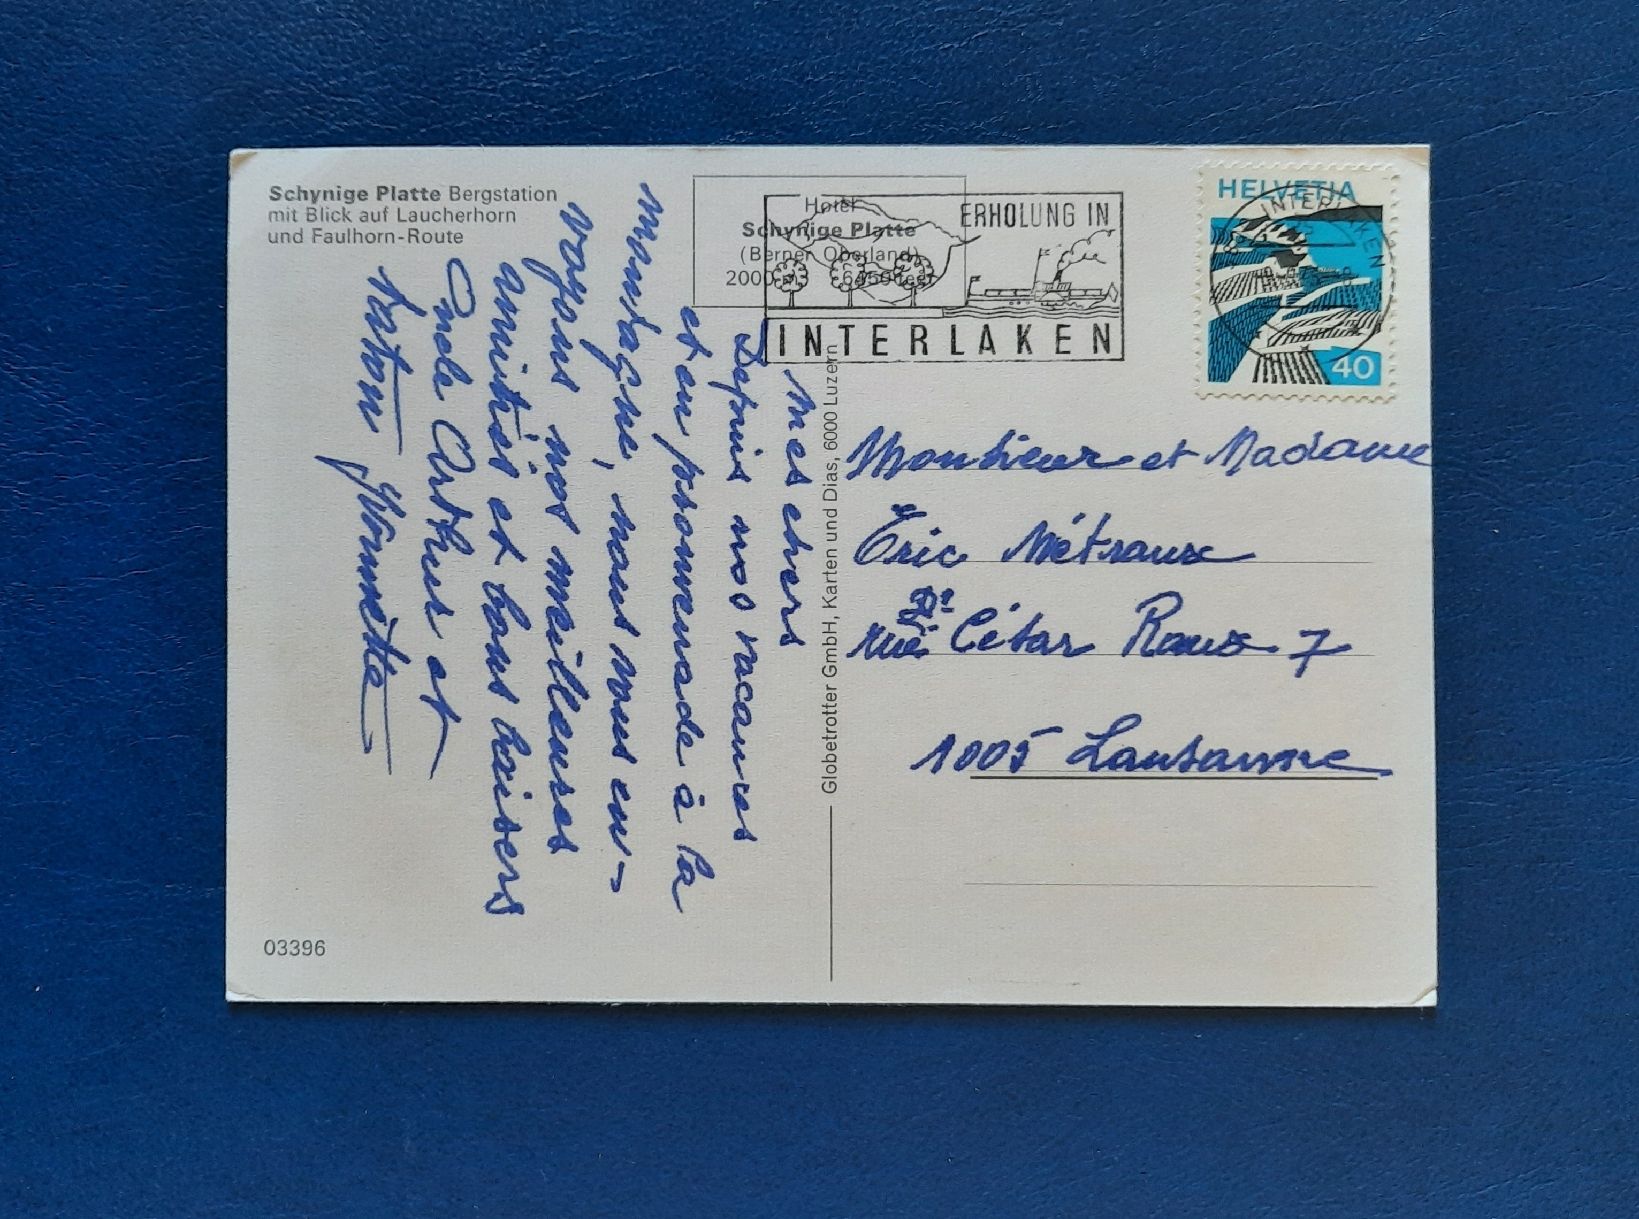 Schynige Platte Bergstation
mit Blick auf Laucherhorn
und Faulhorn-Route
Hotel
Schynige Platte
(Berner Oberland)
2000 m
ERHOLUNG IN
INTERLAKEN
HELVETIA
INTERLAKEN
40
Mes chers
Depuis nos vacances
et en promenade à la
montagne, nous vous en-
voyons nos meilleures
amitiés et bons baisers
Oncle Arthur et
taton Yvonnette
Globetrotter GmbH, Karten und Dias, 6000 Luzern
Monsieur et Madame
Eric Métraux
rue Dr César Roux 7
1005 Lausanne
03396